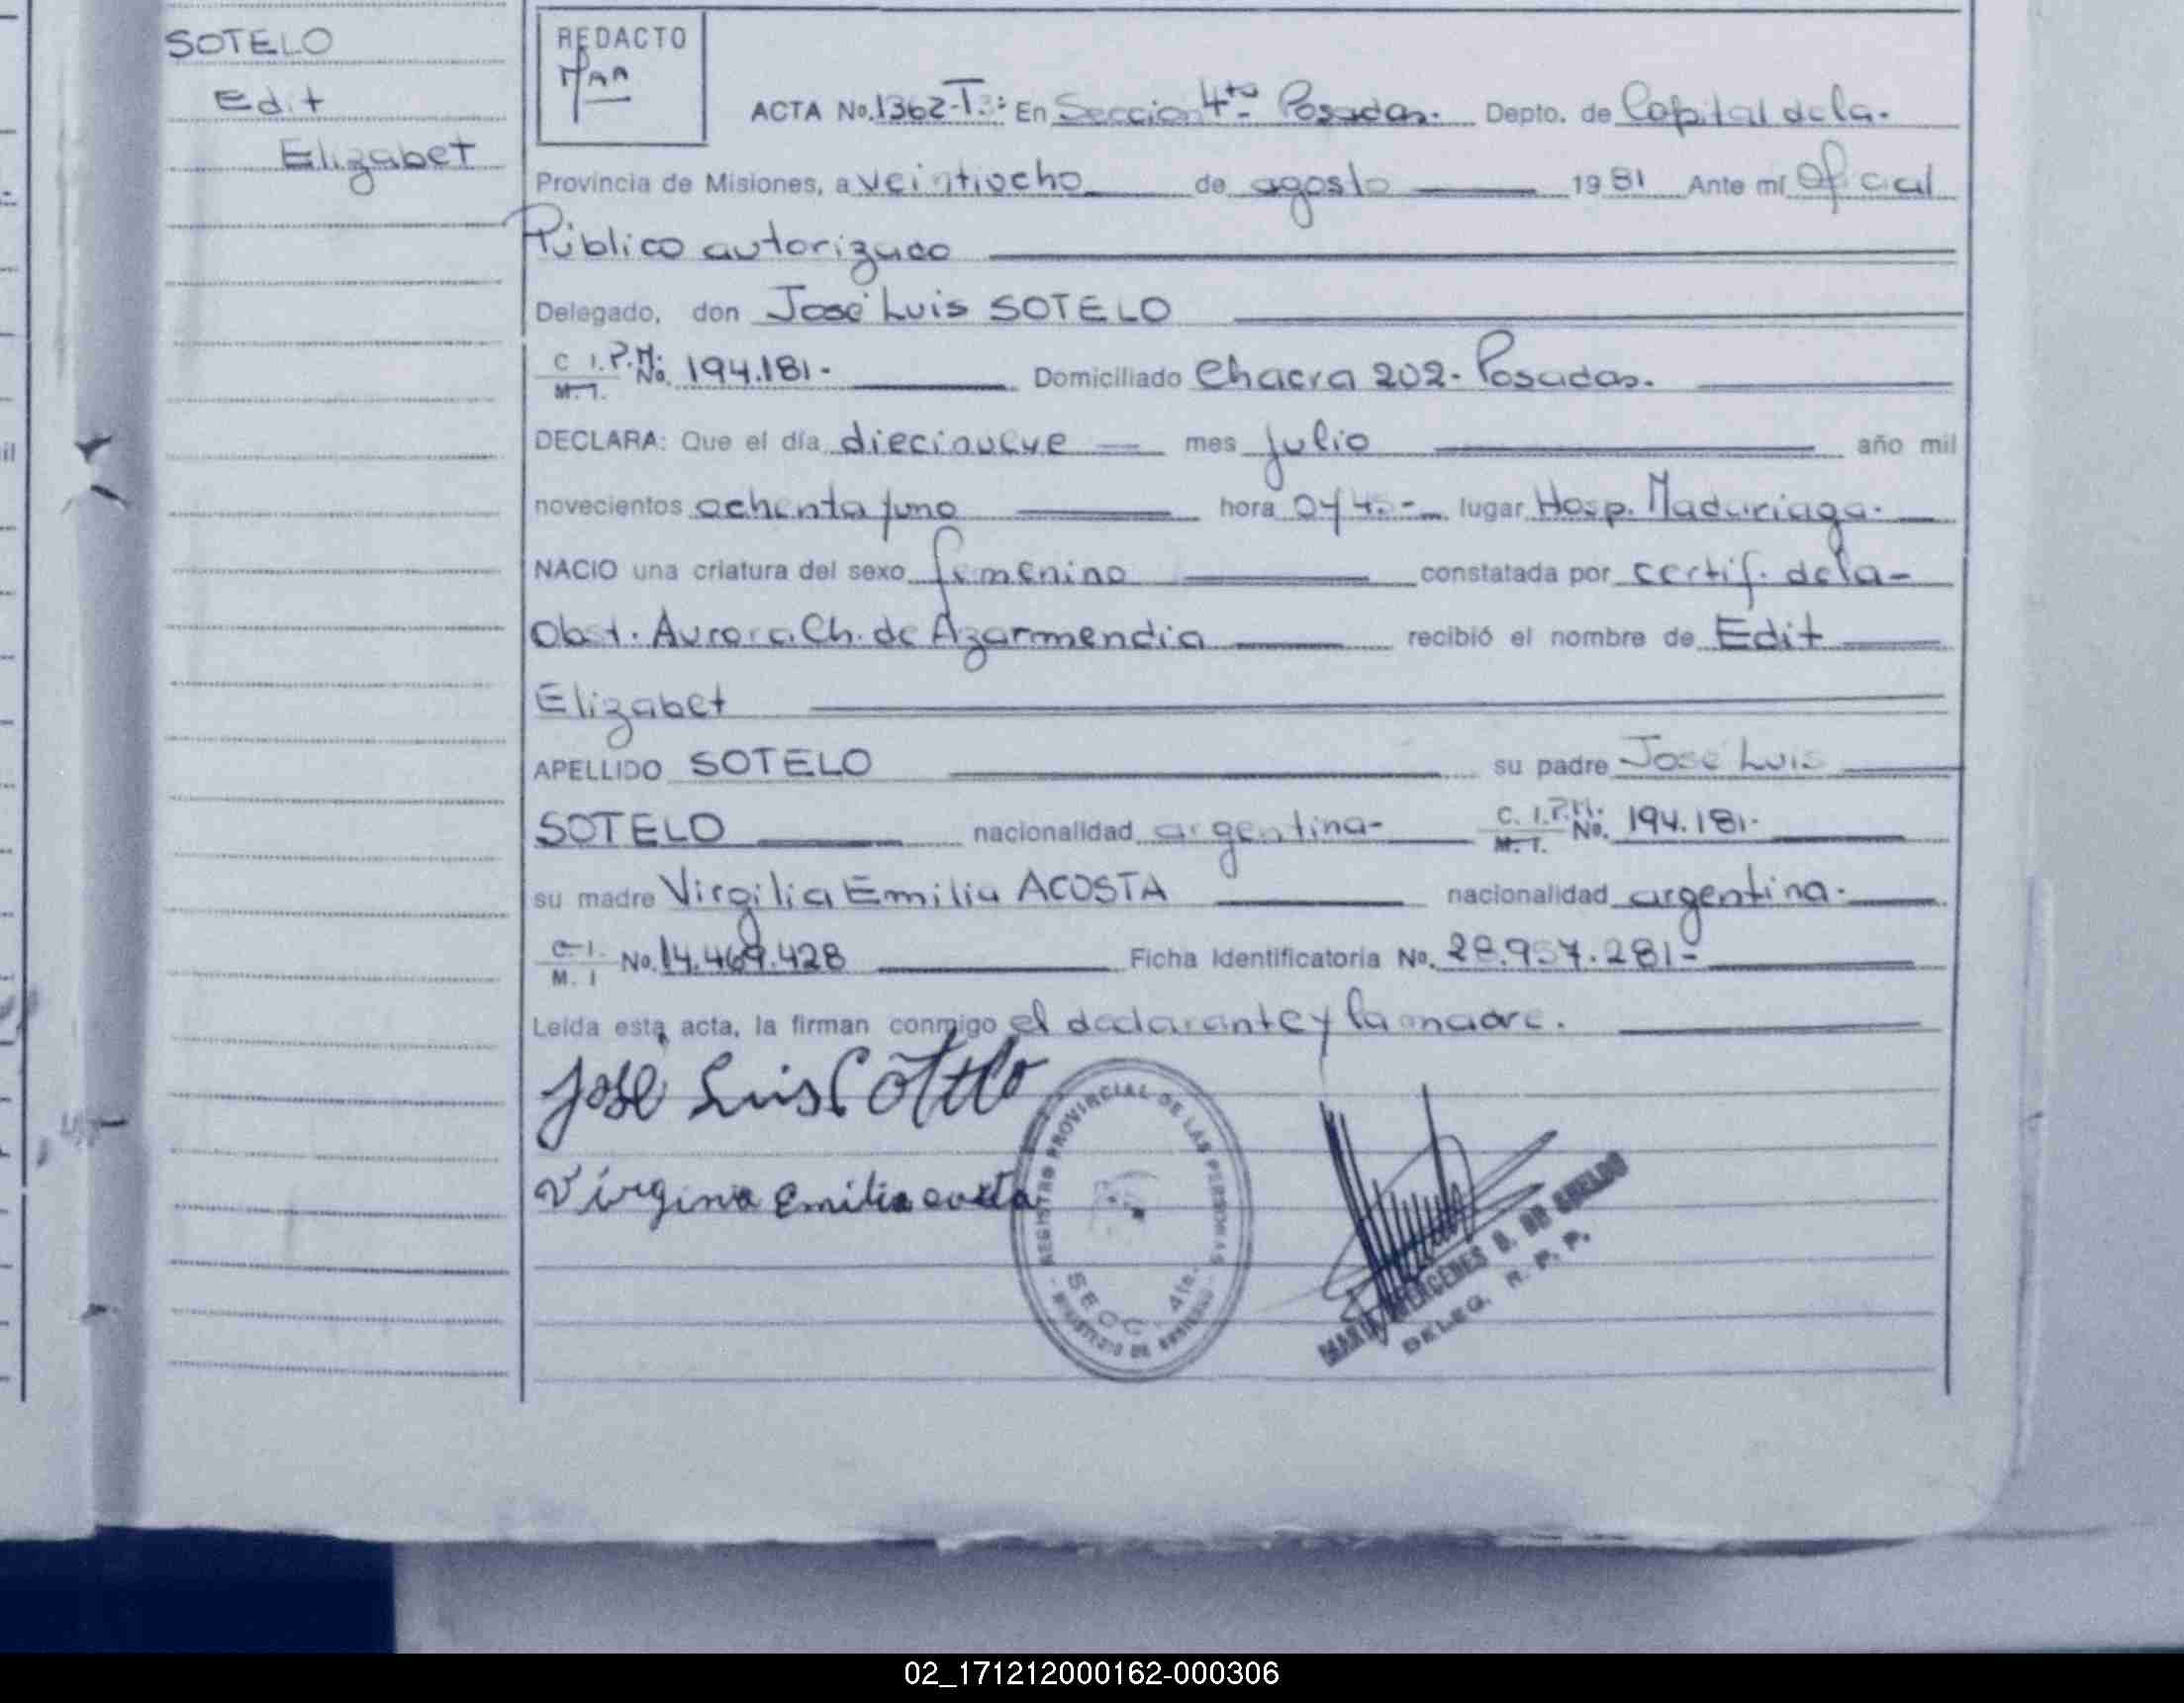 SOTELO
Edit
Elizabet
REDACTO
ACTA No. 1362-T3: En Seccion 4ta Posadas. Depto. de Capital de la.
Provincia de Misiones, a veintiocho de agosto 1981 Ante mí Oficial
Público autorizado
Delegado, don José Luis SOTELO
C.I.P.M. No. 194.181.- Domiciliado Chacra 202. Posadas.
M.I.
DECLARA: Que el día diecinueve mes julio año mil
novecientos ochenta y uno hora lugar Hosp. Madariaga.
NACIO una criatura del sexo femenino constatada por certif. de la-
Obst. Aurora Ch. de Azarmendia recibió el nombre de Edit
Elizabet
APELLIDO SOTELO su padre José Luis
SOTELO nacionalidad argentina- C.I.P.M. No. 194.181.
M.I.
su madre Virgilia Emilia ACOSTA nacionalidad argentina.
C.I. No. 14.469.428 Ficha Identificatoria No. 28.957.281-
M. I
Leída esta acta, la firman conmigo el declarante y la madre.
José Luis Sotelo
Virginia Emilia
REGISTRO PROVINCIAL DE LAS PERSONAS
SECC. 4ta.
MINISTERIO DE GOBIERNO
MARIA MERCEDES B. DE
DELEG. R. P. P.
il
02_171212000162-000306